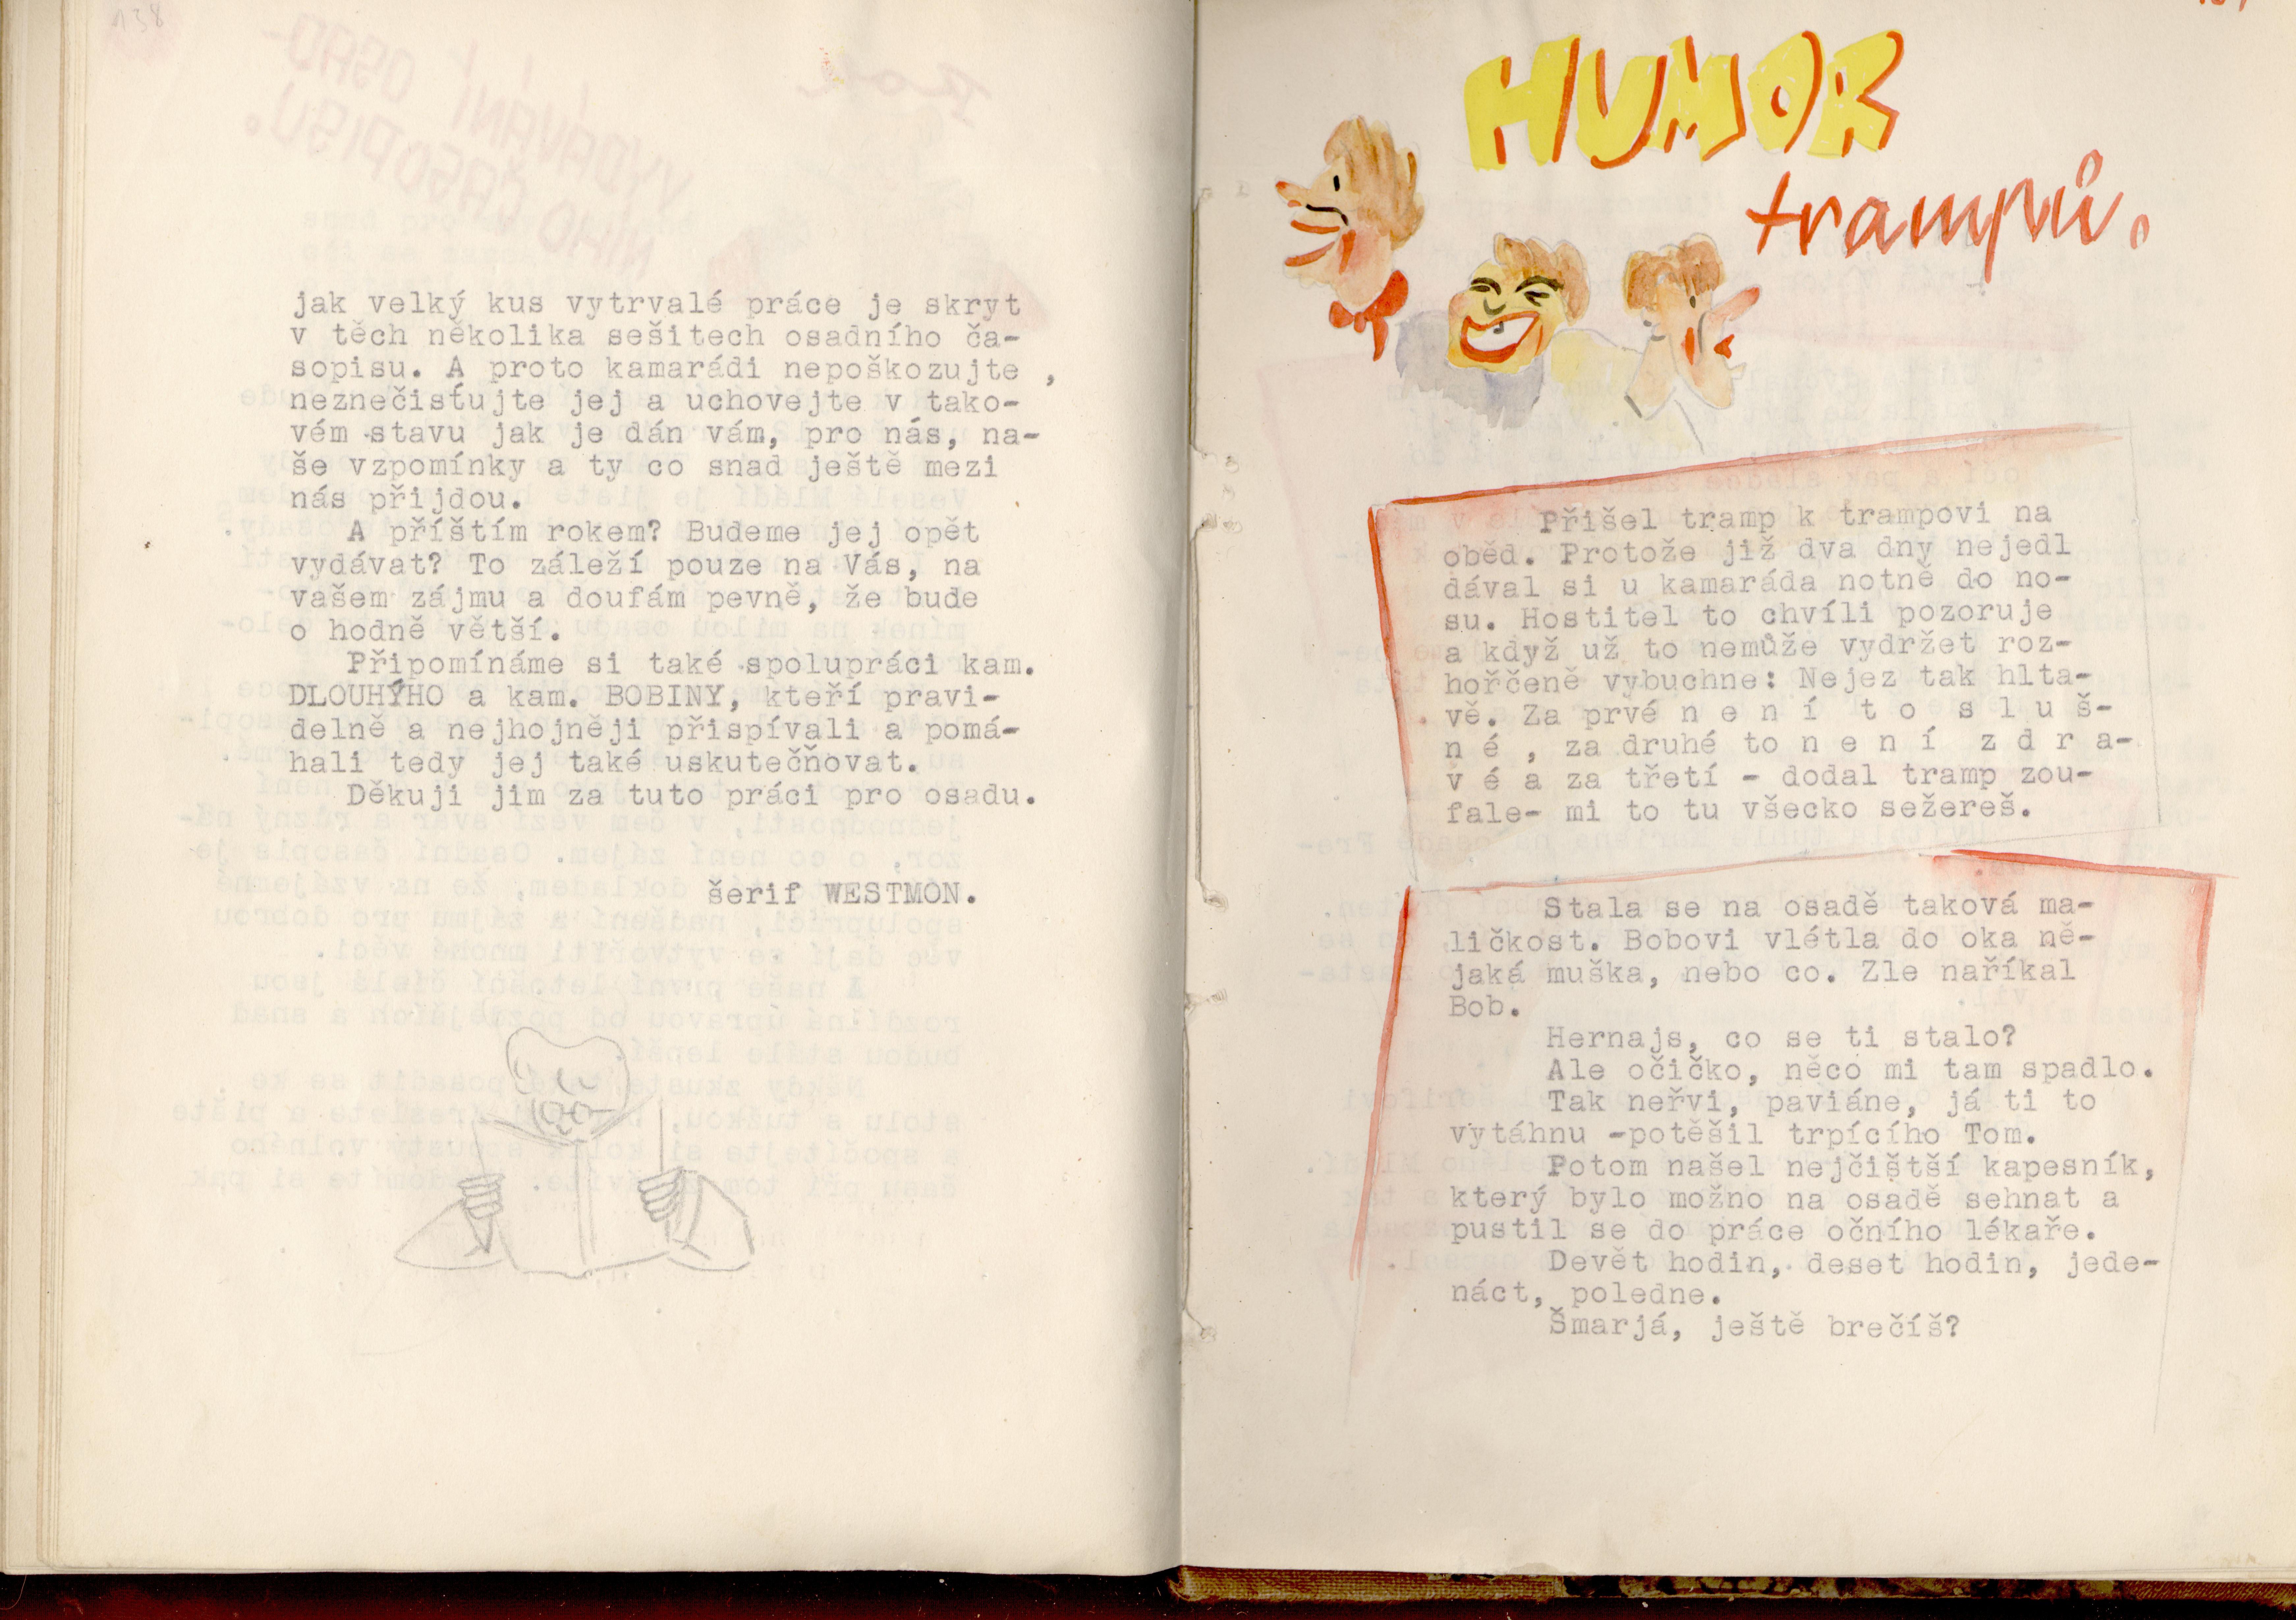 138
jak velký kus vytrvalé práce je skryt
v těch několika sešitech osadního ča-
sopisu. A proto kamarádi nepoškozujte ,
neznečisťujte jej a uchovejte v tako-
vém stavu jak je dán vám, pro nás, na-
še vzpomínky a ty co snad ještě mezi
nás přijdou.
A příštím rokem? Budeme jej opět
vydávat? To záleží pouze na Vás, na
vašem zájmu a doufám pevně, že bude
o hodně větší.
Připomínáme si také spolupráci kam.
DLOUHÝHO a kam. BOBINY, kteří pravi-
delně a nejhojněji přispívali a pomá-
hali tedy jej také uskutečňovat.
Děkuji jim za tuto práci pro osadu.
šerif WESTMON.
HUMOR
trampů.
Přišel tramp k trampovi na
oběd. Protože již dva dny nejedl
dával si u kamaráda notně do no-
su. Hostitel to chvíli pozoruje
a když už to nemůže vydržet roz-
hořčeně vybuchne: Nejez tak hlta-
vě. Za prvé n e n í t o s l u š-
n é , za druhé to n e n í z d r a-
v é a za třetí - dodal tramp zou-
fale- mi to tu všecko sežereš.
Stala se na osadě taková ma-
ličkost. Bobovi vlétla do oka ně-
jaká muška, nebo co. Zle naříkal
Bob.
Hernajs, co se ti stalo?
Ale očičko, něco mi tam spadlo.
Tak neřvi, paviáne, já ti to
vytáhnu -potěšil trpícího Tom.
Potom našel nejčištší kapesník,
který bylo možno na osadě sehnat a
pustil se do práce očního lékaře.
Devět hodin, deset hodin, jede-
náct, poledne.
Šmarjá, ještě brečíš?